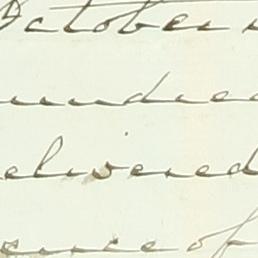 October
undred
elivered
ence of